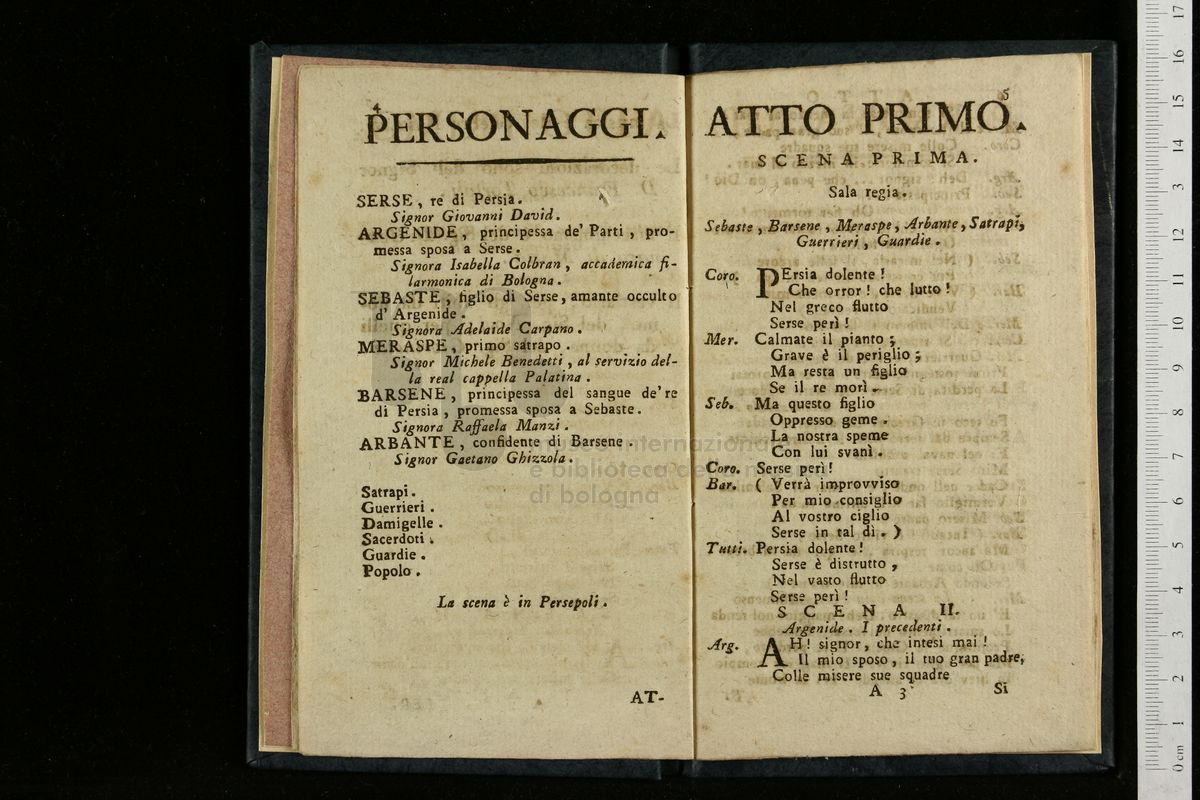 4
PERSONAGGI.
SERSE, re di Persia.
Signor Giovanni David.
ARGENIDE, principessa de' Parti, pro-
messa sposa a Serse.
Signora Isabella Colbran, accademica fi-
larmonica di Bologna.
SEBASTE, figlio di Serse, amante occulto
d' Argenide.
Signora Adelaide Carpano.
MERASPE, primo satrapo.
Signor Michele Benedetti, al servizio del-
la real cappella Palatina.
BARSENE, principessa del sangue de' re
di Persia, promessa sposa a Sebaste.
Signora Raffaela Manzi.
ARBANTE, confidente di Barsene.
Signor Gaetano Ghizzola.
Satrapi.
Guerrieri.
Damigelle.
Sacerdoti.
Guardie.
Popolo.
La scena è in Persepoli.
AT-
5
ATTO PRIMO.
SCENA PRIMA.
Sala regia.
Sebaste, Barsene, Meraspe, Arbante, Satrapi,
Guerrieri, Guardie.
Coro. PErsia dolente!
Che orror! che lutto!
Nel greco flutto
Serse perì!
Mer. Calmate il pianto;
Grave è il periglio;
Ma resta un figlio
Se il re morì.
Seb. Ma questo figlio
Oppresso geme.
La nostra speme
Con lui svanì.
Coro. Serse perì!
Bar. ( Verrà improvviso
Per mio consiglio
Al vostro ciglio
Serse in tal dì. )
Tutti. Persia dolente!
Serse è distrutto,
Nel vasto flutto
Serse perì!
SCENA II.
Argenide. I precedenti.
Arg. AH! signor, che intesi mai!
Il mio sposo, il tuo gran padre,
Colle misere sue squadre
A 3 Si
internazionale
e biblioteca della
di bologna
0 cm 1 2 3 4 5 6 7 8 9 10 11 12 13 14 15 16 17